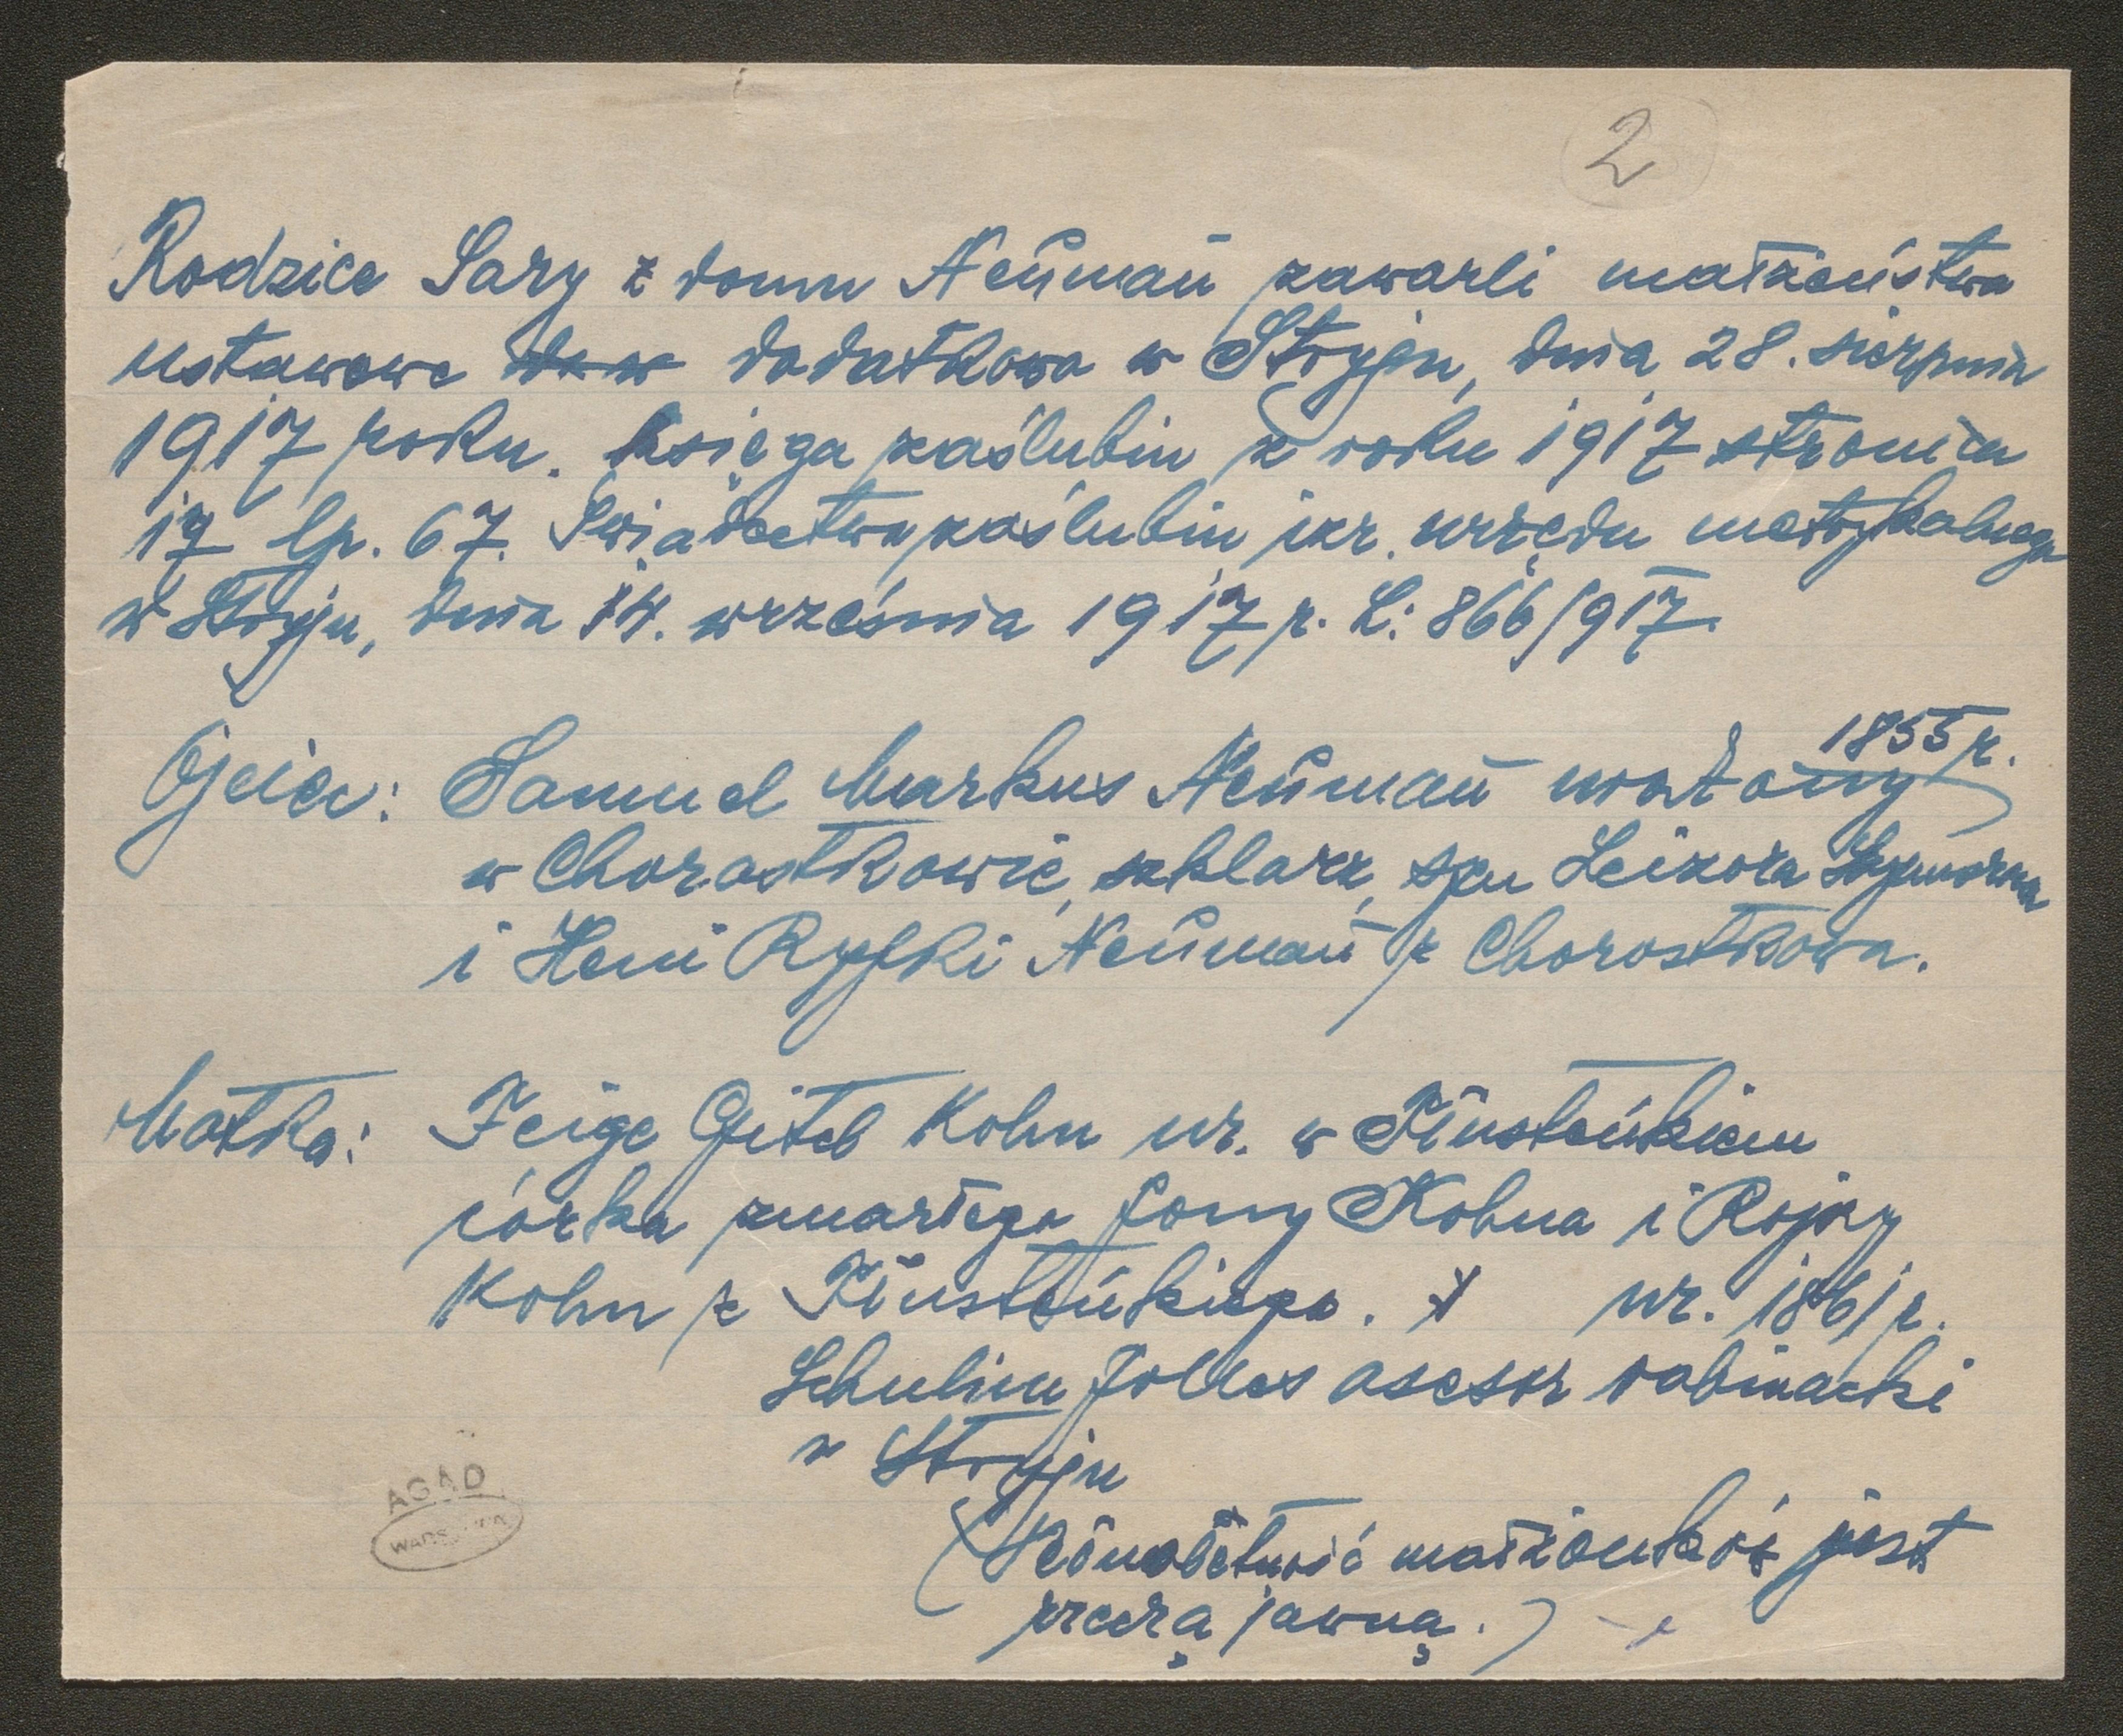 2
Rodzice Sary z domu Neúman zawarli małżeństwo
ustawowe dodatkowo w Stryju, dnia 28. sierpnia
1917 roku. Księga zaślubin z roku 1917 stronica
17 lp. 67. Świadectwo zaślubin izr. urzędu metrykalnego
w Stryju, dnia 14. września 1917 r. L: 866/917.
1855 r.
Ojciec: Samuel Markus Neúman urodzony
w Chorostkowie, szklarz, syn Leizora
i Heni Ryfki Neúman z Chorostkowa.
Matka: Feige Gitel Kohn ur. w
córka zmarłego Jony Kohna i Rojzy
Kohn z ur. 1861 r.
Schulim Jolles asesor rabinacki
w Stryju
małżonków jest
rzeczą jawną.)
AGAD
WARSZAWA